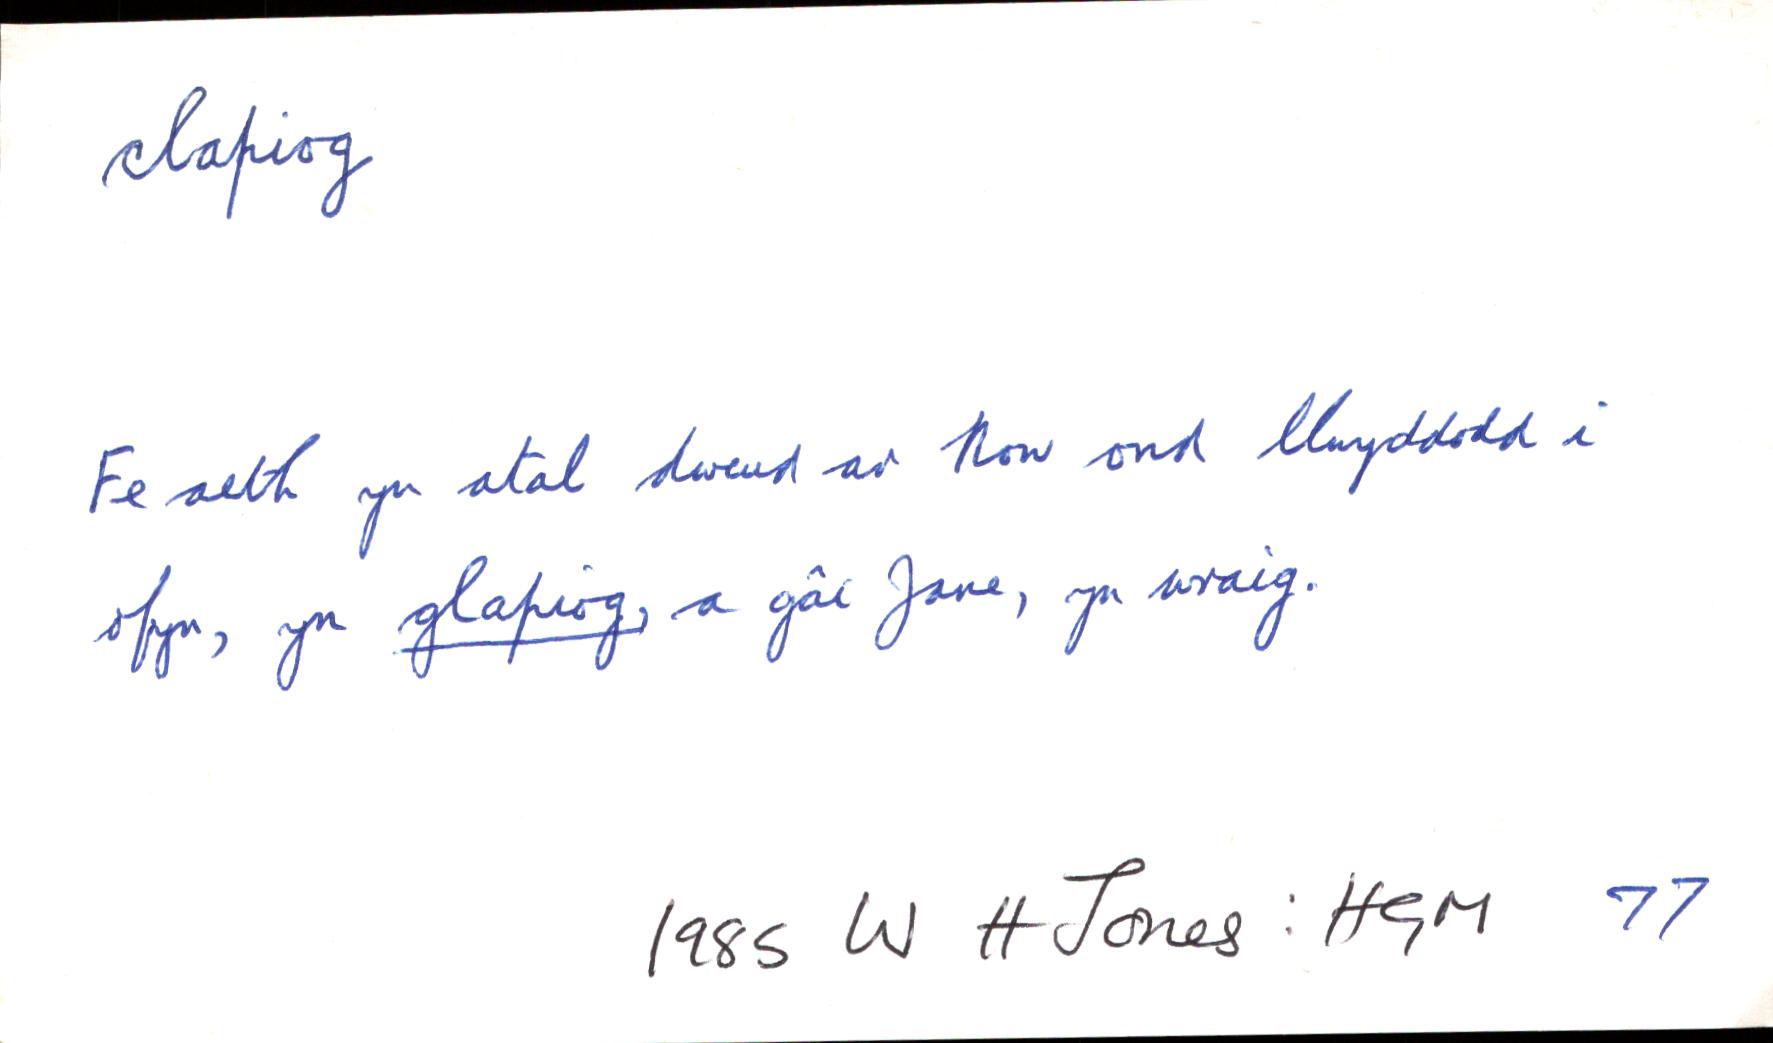 clapiog
Fe aeth yn atal dweud ar Now ond llwyddodd i
ofyn, yn glapiog, a gâi Jane, yn wraig.
1985 W H Jones : HGM 77